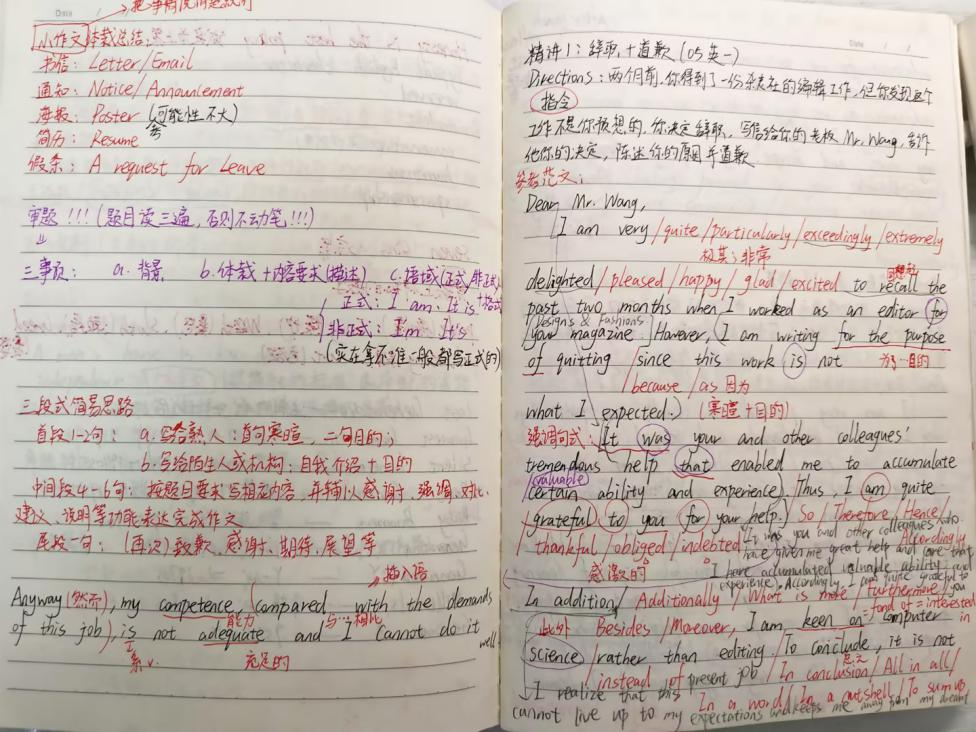 小作文体裁总结:
书信: Letter/Email
通知: Notice/Announcement
海报: Poster (可能性不大)
简历: Resume
假条: A request for Leave
审题!!! (题目读三遍, 否则不动笔!!!)
三事项: a. 背景 b. 体裁+内容要求(描述) c. 语域(正式/非正式)+格式
正式: I am. It is
非正式: I'm It's
(实在拿不准一般都写正式的)
三段式简易思路
首段1-2句: a. 写给熟人: 首句寒暄, 二句目的;
b. 写给陌生人或机构: 自我介绍+目的
中间段4-6句: 按题目要求写相应内容, 并辅以感谢、强调、对比、
建议、说明等功能表达完成作文
尾段一句: (再次)致歉、感谢、期待、展望等
插入语
Anyway(然而), my competence, (compared with the demands
能力 与…相比
of this job), is not adequate and I cannot do it well
系v. 充足的
精讲1: 辞职+道歉 (05英一)
Directions: 两个月前, 你得到了一份杂志的编辑工作, 但你发现这个
指令
工作不是你预想的, 你决定辞职, 写信给你的老板 Mr. Wang, 告诉
他你的决定, 陈述你的原因并道歉
参考范文:
Dear Mr. Wang,
I am very/quite/particularly/exceedingly/extremely
极其; 非常
delighted/pleased/happy/glad/excited to recall the
past two months when I worked as an editor for
Designs & Fashions
your magazine. However, I am writing for the purpose
of quitting /since this work is not 为了…目的
/because/as 因为
what I expected.) (寒暄+目的)
强调句式: It was your and other colleagues'
tremendous help that enabled me to accumulate
valuable
certain ability and experience). Thus, I am quite
grateful to you for your help.) So/Therefore/Hence/
/thankful/obliged/indebted Accordingly
It was you and other colleagues who
have given me great help and care that
感激的 I have accumulated valuable ability and
experience). Accordingly, I am quite grateful to you
In addition/Additionally/What is more/Furthermore/
=fond of=interested in
此外 Besides/Moreover, I am keen on computer
science/rather than editing. To conclude, it is not
/instead of present job/In conclusion/All in all/
I realize that this In a word/In a nutshell/To sum up
cannot live up to my expectations and keeps me away from my dream